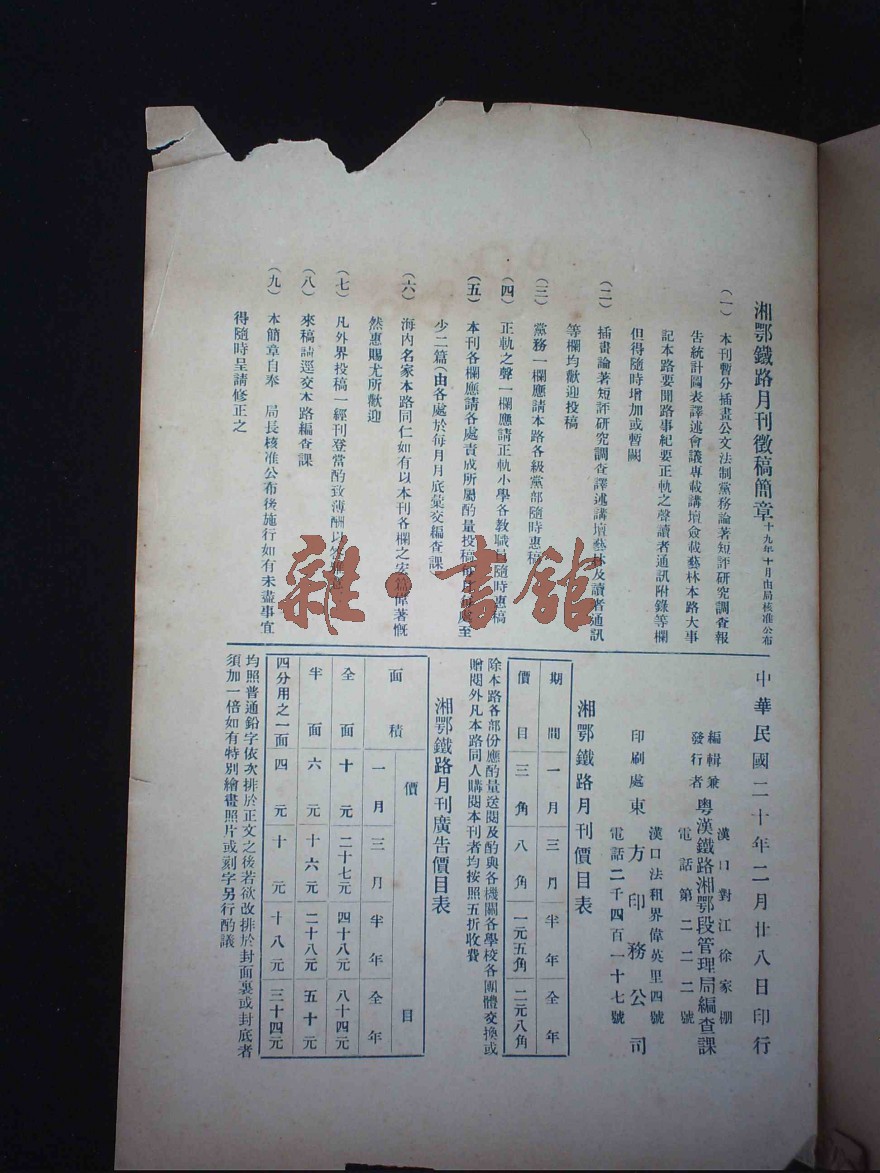 湘鄂鐵路月刊徵稿簡章 十九年十月由局核准公布
（一）本刊暫分插畫公文法制黨務論著短評研究調查報
告統計圖表譯述會議專載講壇僉載藝林本路大事
記本路要聞路事紀要正軌之聲讀者通訊附錄等欄
但得隨時增加或暫闕
（二）插畫論著短評研究調查譯述講壇藝林及讀者通訊
等欄均歡迎投稿
（三）黨務一欄應請本路各級黨部隨時惠稿
（四）正軌之聲一欄應請正軌小學各教職員隨時惠稿
（五）本刊各欄應請各處責成所屬酌量投稿每月每處至
少二篇（由各處於每月月底彙交編查課）
（六）海內名家本路同仁如有以本刊各欄之宏篇偉著慨
然惠賜尤所歡迎
（七）凡外界投稿一經刊登當酌致薄酬以
（八）來稿請逕交本路編查課
（九）本簡章自奉　局長核准公布後施行如有未盡事宜
得隨時呈請修正之
中華民國二十年二月廿八日印行
漢口對江徐家棚
編輯兼發行者　粵漢鐵路湘鄂段管理局編查課
電話第二二二號
漢口法租界偉英里四號
印刷處　東方印務公司
電話二千四百一十七號
湘鄂鐵路月刊價目表
期間　一月　三月　半年　全年
價目　三角　八角　一元五角　二元八角
除本路各部份應酌量送閱及酌與各機關各學校各團體交換或
贈閱外凡本路同人購閱本刊者均按照五折收費
湘鄂鐵路月刊廣告價目表
面積　價目
一月　三月　半年　全年
全面　十元　二十七元　四十八元　八十四元
半面　六元　十六元　二十八元　五十元
四分用之一面　四元　十元　十八元　三十四元
均照普通鉛字依次排於正文之後若欲改排於封面裏或封底者
須加一倍如有特別繪畫照片或刻字另行酌議
雜·書館